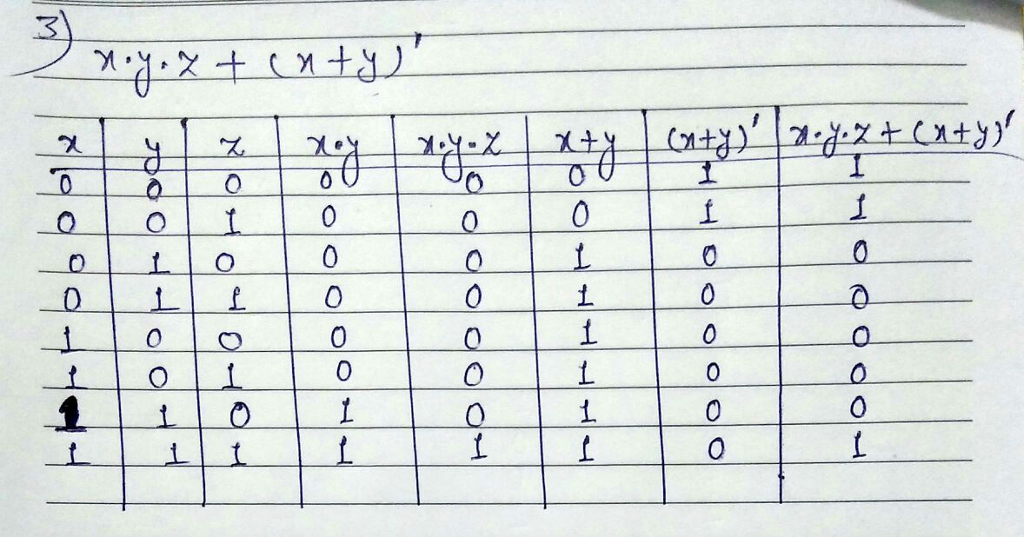 3)
x·y·z + (x+y)'
x y z x·y x·y·z x+y (x+y)' x·y·z + (x+y)'
0 0 0 0 0 0 1 1
0 0 1 0 0 0 1 1
0 1 0 0 0 1 0 0
0 1 1 0 0 1 0 0
1 0 0 0 0 1 0 0
1 0 1 0 0 1 0 0
1 1 0 1 0 1 0 0
1 1 1 1 1 1 0 1